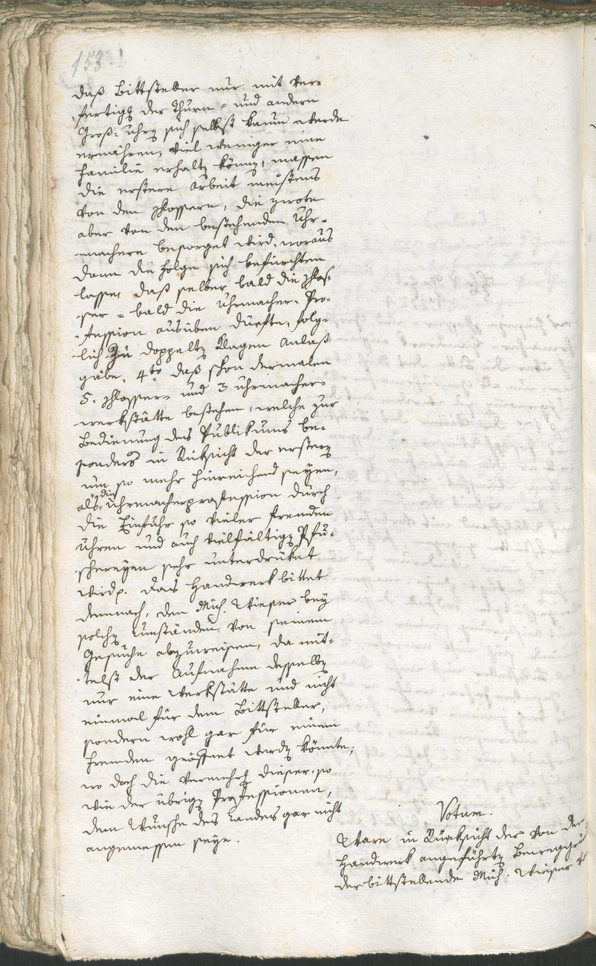 153
daß Bittsteller nur mit Ver-
fertigg der Thurn- und andern
Groß-Uhrn sich selbst kaum werde
ernähren, viel weniger eine
Familie erhaltn könne, massen
die erstere Arbeit meistens
von den Schlossern, die zwote
aber von den bestehenden Uhr-
machern besorget wird, woraus
dann die Folge sich befürchten
lasse, daß selber bald die Schlos-
ser- bald die Uhrmacher-Pro-
fession ausüben dürfte, folg-
lich zu doppeltn Klagen Anlaß
gäbe. 4to daß schon dermalen
5. Schlosser- und 3 Uhrmacher-
werkstätte bestehen, welche zur
Bedienung des Publikums be-
sonders in Rücksicht der erstern
um so mehr hinreichend seyen,
als die Uhrmacherprofession durch
die Einfuhr so vieler fremden
Uhren und auch vielfältign Pfu-
schereyen sehr unterdrücket
wird. Das Handwerk bittet
demnach, den Mich. Wieser bey
solchn Umständen von seinem
Gesuche abzuweisen, da mit-
telst der Aufnahme desselbn
nur eine Werkstätte und nicht
einmal für dem Bittsteller,
sondern wohl gar für einem
Fremden geöffnet werdn könnte,
wo doch die Vermehrg dieser, so
wie der übrign Professionen,
dem Wunsche des Landes gar nicht
angemessen seye.
Votum.
Wäre in Rücksicht der von dem
Handwerk angeführtn Beweggründe
der bittstellende Mich. Wieser